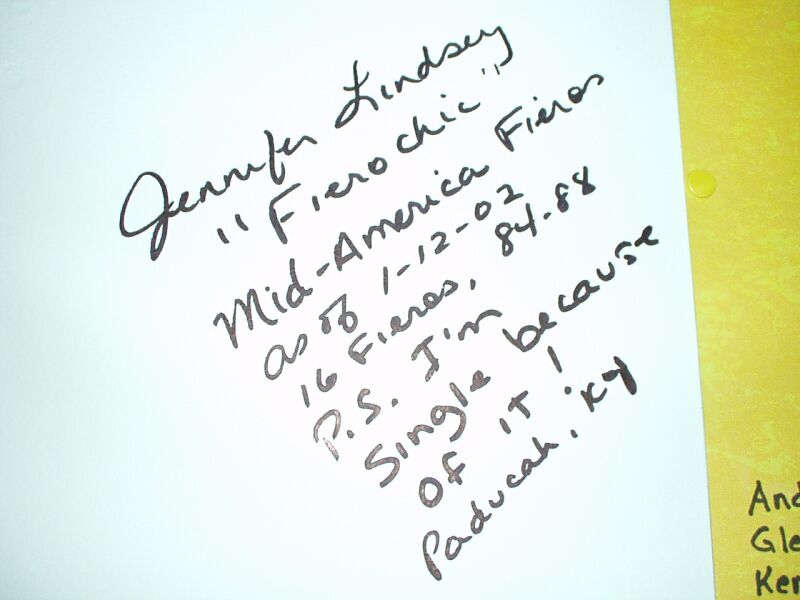 Jennifer Lindsey
"Fierochic"
Mid-America Fieros
as of 1-12-02
16 Fieros, 84-88
P.S. I'm
Single because
Of iT!
Paducah, Ky
And
Gle
Ker